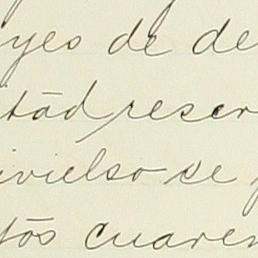 yes de de
tad reser
ivielso se
tos cuaren